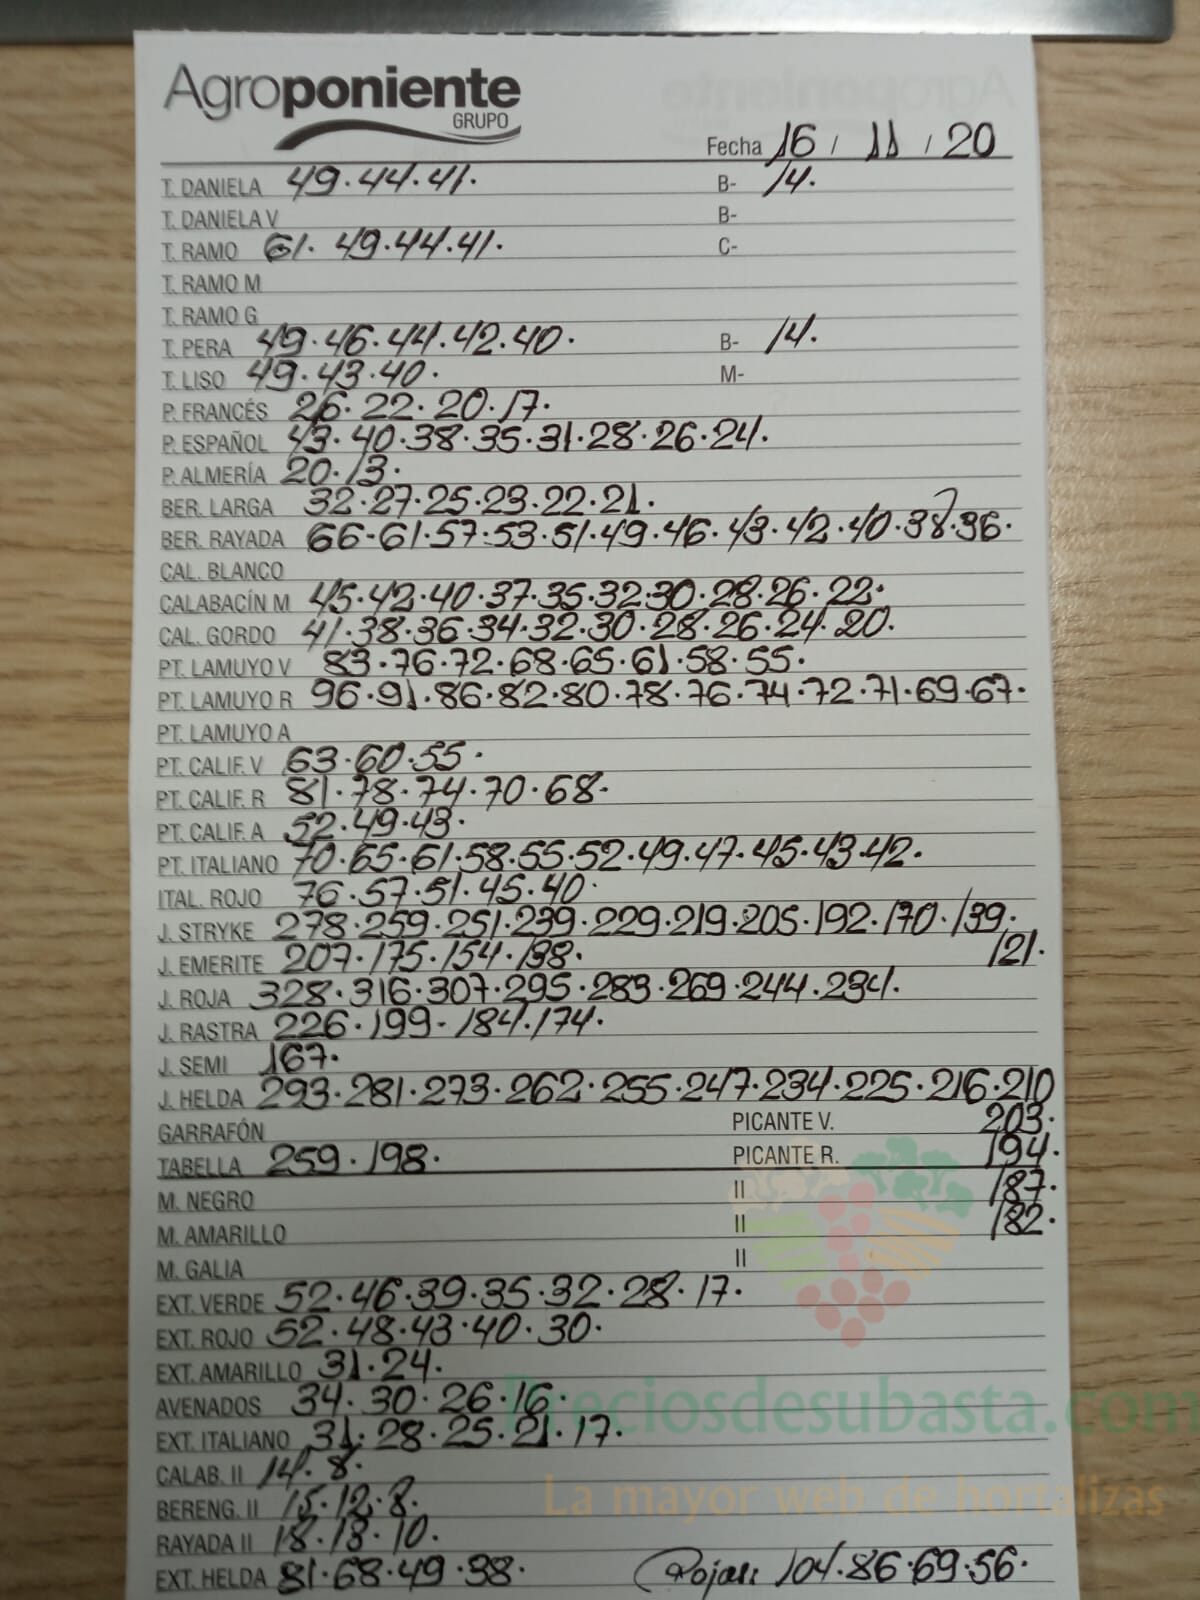 Agroponiente
GRUPO
Fecha 16 / 11 / 20
T. DANIELA 49.44.41. B- 14.
T. DANIELA V B-
T. RAMO 61. 49.44.41. C-
T. RAMO M
T. RAMO G
T. PERA 49.46.44.42.40. B- 14.
T. LISO 49.43.40. M-
P. FRANCÉS 26.22.20.17.
P. ESPAÑOL 43.40.38.35.31.28.26.24.
P. ALMERÍA 20.13.
BER. LARGA 32.27.25.23.22.21.
BER. RAYADA 66-61.57.53.51.49.46.43.42.40.38.36.
CAL. BLANCO
CALABACÍN M 45.42.40.37.35.32.30.28.26.22.
CAL. GORDO 41.38.36.34.32.30.28.26.24.20.
PT. LAMUYO V 83.76.72.68.65.61.58.55.
PT. LAMUYO R 96.91.86.82.80.78.76.74.72.71.69.67.
PT. LAMUYO A
PT. CALIF. V 63.60.55.
PT. CALIF. R 81.78.74.70.68.
PT. CALIF. A 52.49.43.
PT. ITALIANO 70.65.61.58.55.52.49.47.45.43.42.
ITAL. ROJO 76.57.51.45.40.
J. STRYKE 278.259.251.239.229.219.205.192.170.139.
J. EMERITE 207.175.154.138. 121.
J. ROJA 328.316.307.295.283.269.244.234.
J. RASTRA 226.199-184.174.
J. SEMI 167.
J. HELDA 293.281.273.262.255.247.234.225.216.210
GARRAFÓN PICANTE V. 203.
TABELLA 259.198. PICANTE R. 194.
M. NEGRO II 187.
M. AMARILLO II 182.
M. GALIA II
EXT. VERDE 52.46.39.35.32.28.17.
EXT. ROJO 52.48.43.40.30.
EXT. AMARILLO 31.24.
AVENADOS 34.30.26.16.
Preciosdesubasta.com
EXT. ITALIANO 31.28.25.21.17.
CALAB. II 14.8.
La mayor web de hortalizas
BERENG. II 15.12.8.
RAYADA II 18.13.10.
EXT. HELDA 81.68.49.38. Rojas: 104.86.69.56.